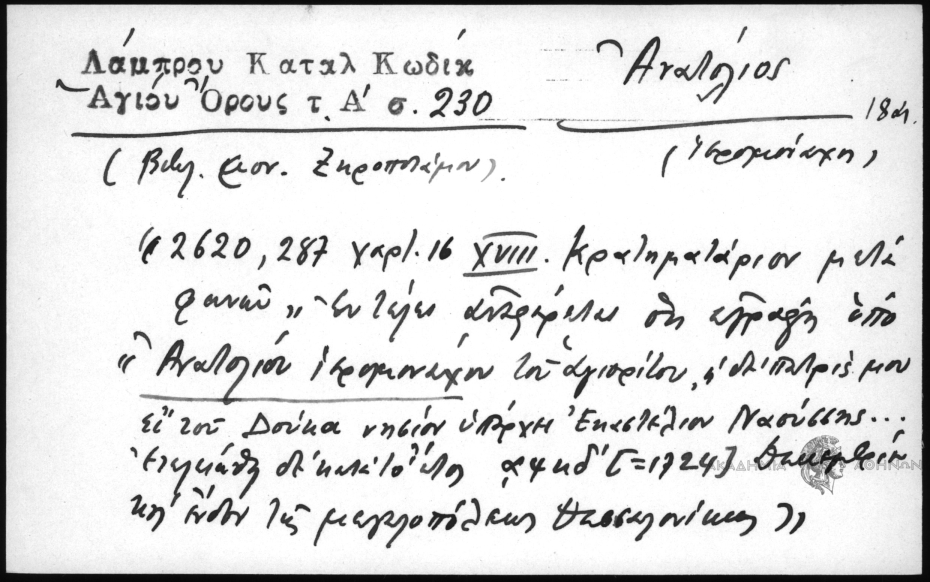 Λάμπρου Καταλ Κωδίκ
Ἁγίου Ὄρους τ. Α' σ. 230
Ἀνατόλιος
18 αἰ.
(Βιβλ. μον. Ξηροποτάμου).
(ἱερομονάχου)
"2620, 287 χαρτ. 16 XVIII. Κρατηματάριον μετὰ
φωνῶν „ Ἐν τέλει ἀναφέρεται ὅτι ἐγράφη ὑπὸ
"Ἀνατολίου ἱερομονάχου τοῦ ἁγιορίτου, ἡ δὲ πατρίς μου
τοῦ Δούκα νησίον ὑπάρχει Ναούσσης...
Ἐτελειώθη δὲ κατὰ τὸ ἔτος ͵αψκδ' [=1724] Δεκεμβρίῳ
κη' ἔνδον τῆς μεγαλοπόλεως Θεσσαλονίκης"
ΑΚΑΔΗΜΙΑ ΑΘΗΝΩΝ